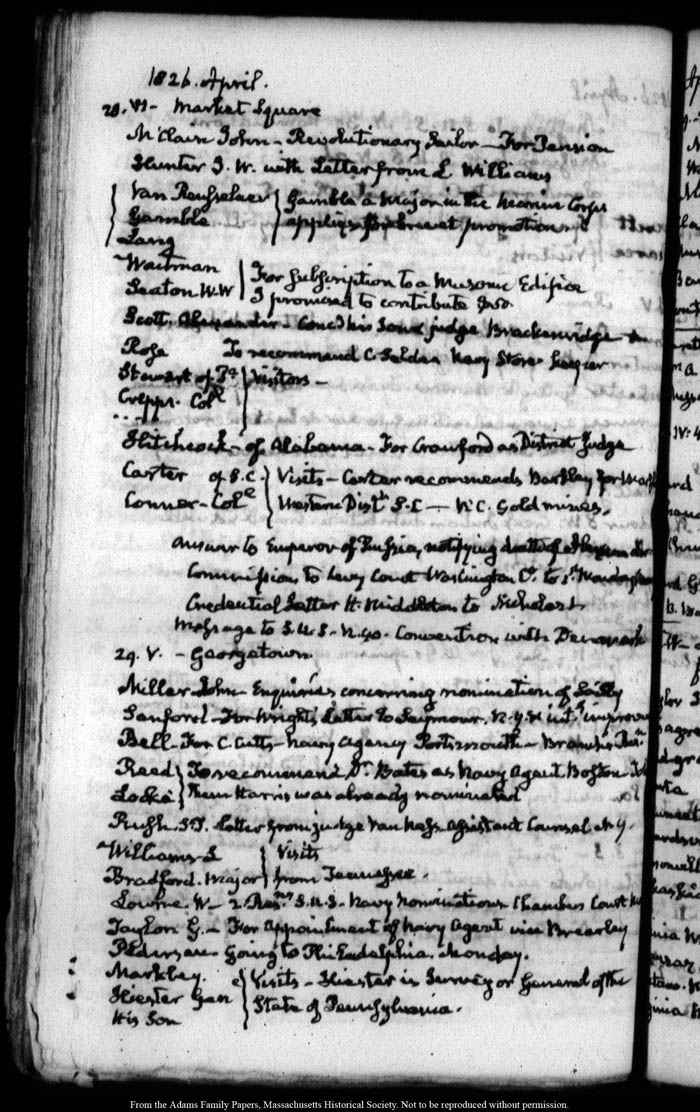 1826. April.
28. VI - Market Square
McClain John - Revolutionary Sailor - For Pension
Hunter J. W. with Letter from L Williams
Van Rensselaer
Gamble
Lang
Gamble a Major in the Marine Corps
applies for brevet promotion
Waitman
Seaton W. W
For Subscription to a Masonic Edifice
I promised to contribute
Scott. Alexander - judge Brackenridge
Rose To recommend C Selden Navy Store Keeper
Stewart of Pa
Crepps. Coll
Visitors -
Hitchcock - of Alabama - For Crawford as District Judge
Carter of S. C.
Conner - Coll
Visits - Carter recommends Barkley for
Western Dist. S. C - N. C. Gold mines.
Answer to Emperor of Russia, notifying death of
Commission to Levy Court Washington Cy. to
Credential Letter H. Middleton to Nicholas 1.
Message to S. U. S. - Convention with Denmark
29. V. - Georgetown
Miller John - Enquiries concerning nomination of
Sanford - For Wright's Letter to Seymour. N. Y.
Bell - For C Cutts - Navy Agency Portsmouth -
Reed
Locke
To recommend Dr. Bates as Navy Agent Boston
them Harris was already nominated
Rush. S. T. Letter from judge Van Ness Assistant Counsel N. Y.
Williams L
Bradford. Major
Visits
from Tennessee.
Lowrie W - 2. S. U. S. - Navy Nominations Chambers Court
Taylor G. - For Appointment of Navy Agent vice Brearley
Pedersen - Going to Philadelphia. Monday.
Markley.
Hiester Gen
His Son
Visits - Hiester is Surveyor General of the
State of Pennsylvania.
From the Adams Family Papers, Massachusetts Historical Society. Not to be reproduced without permission.